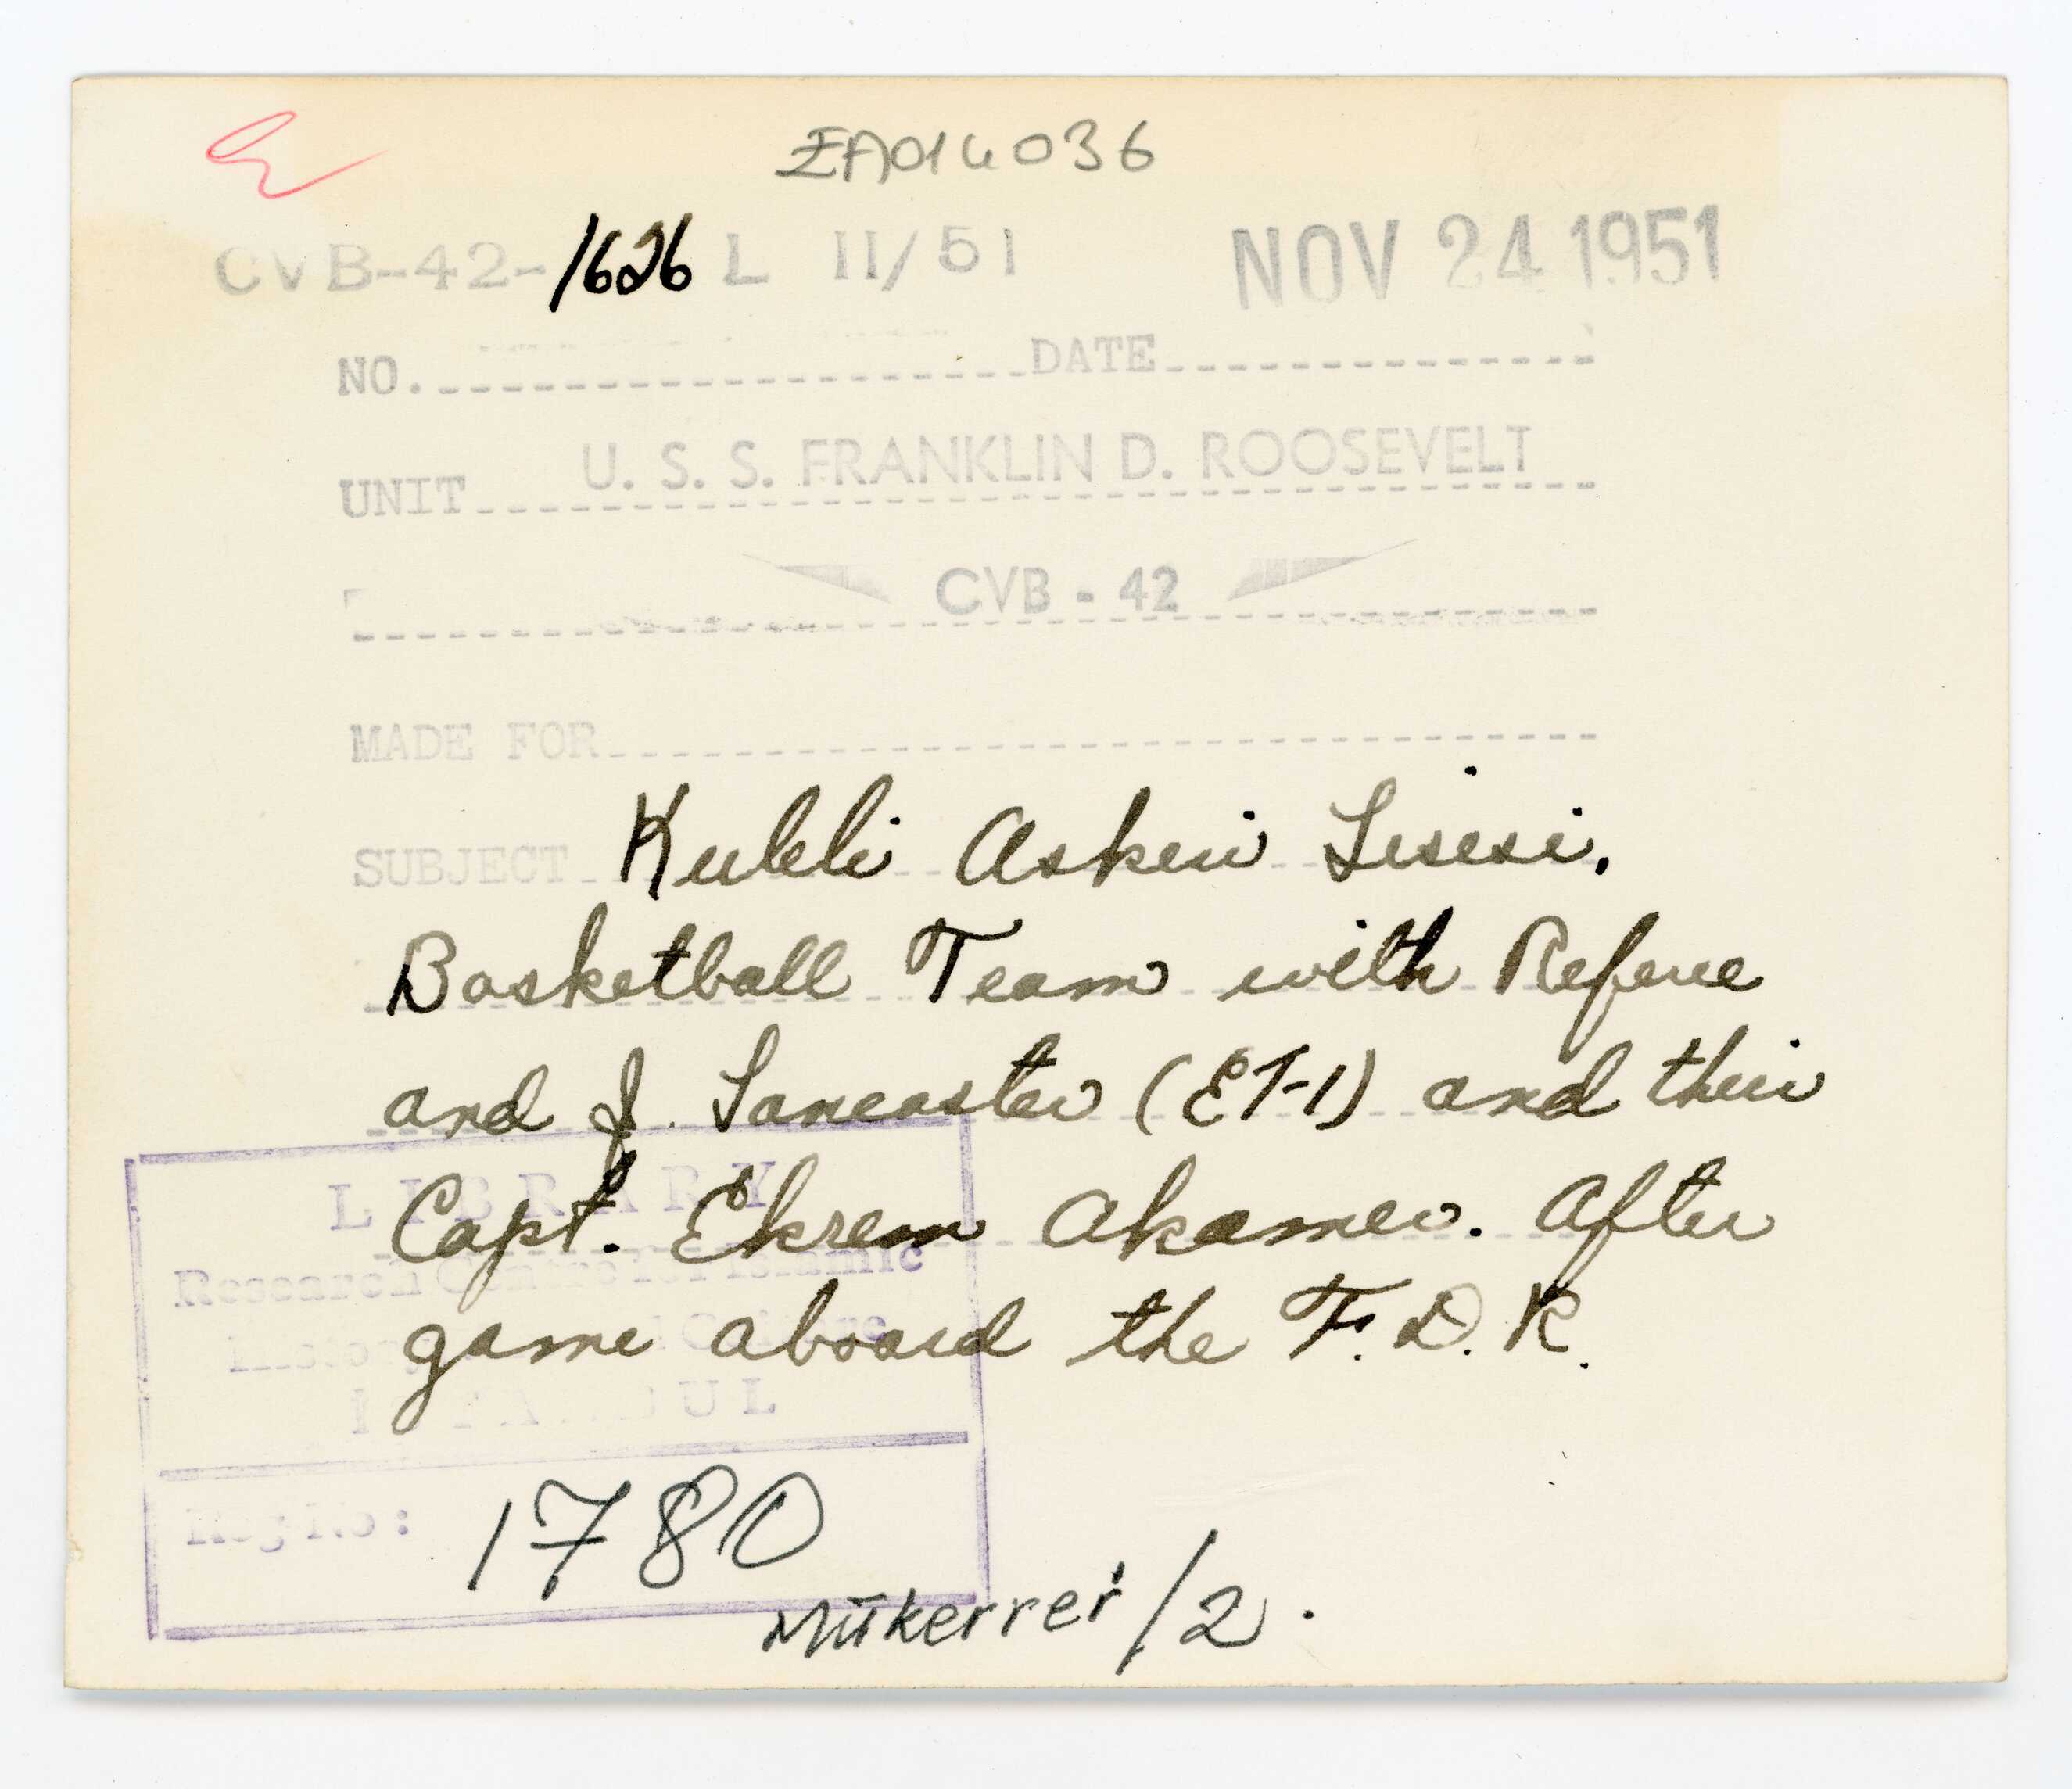 EA014036
CVB-42-1626 L II/51 NOV 24 1951
NO. DATE
UNIT U. S. S. FRANKLIN D. ROOSEVELT
CVB - 42
MADE FOR
SUBJECT Kuleli Askeri Lisesi.
Basketball Team with Referee
and J. Lancaster (ET-1) and their
Capt. Ekrem Akamer. After
game aboard the F. D. R.
LIBRARY
Research Centre for Islamic
History and Culture
ISTANBUL
Reg No : 1780
Mükerrer/2.